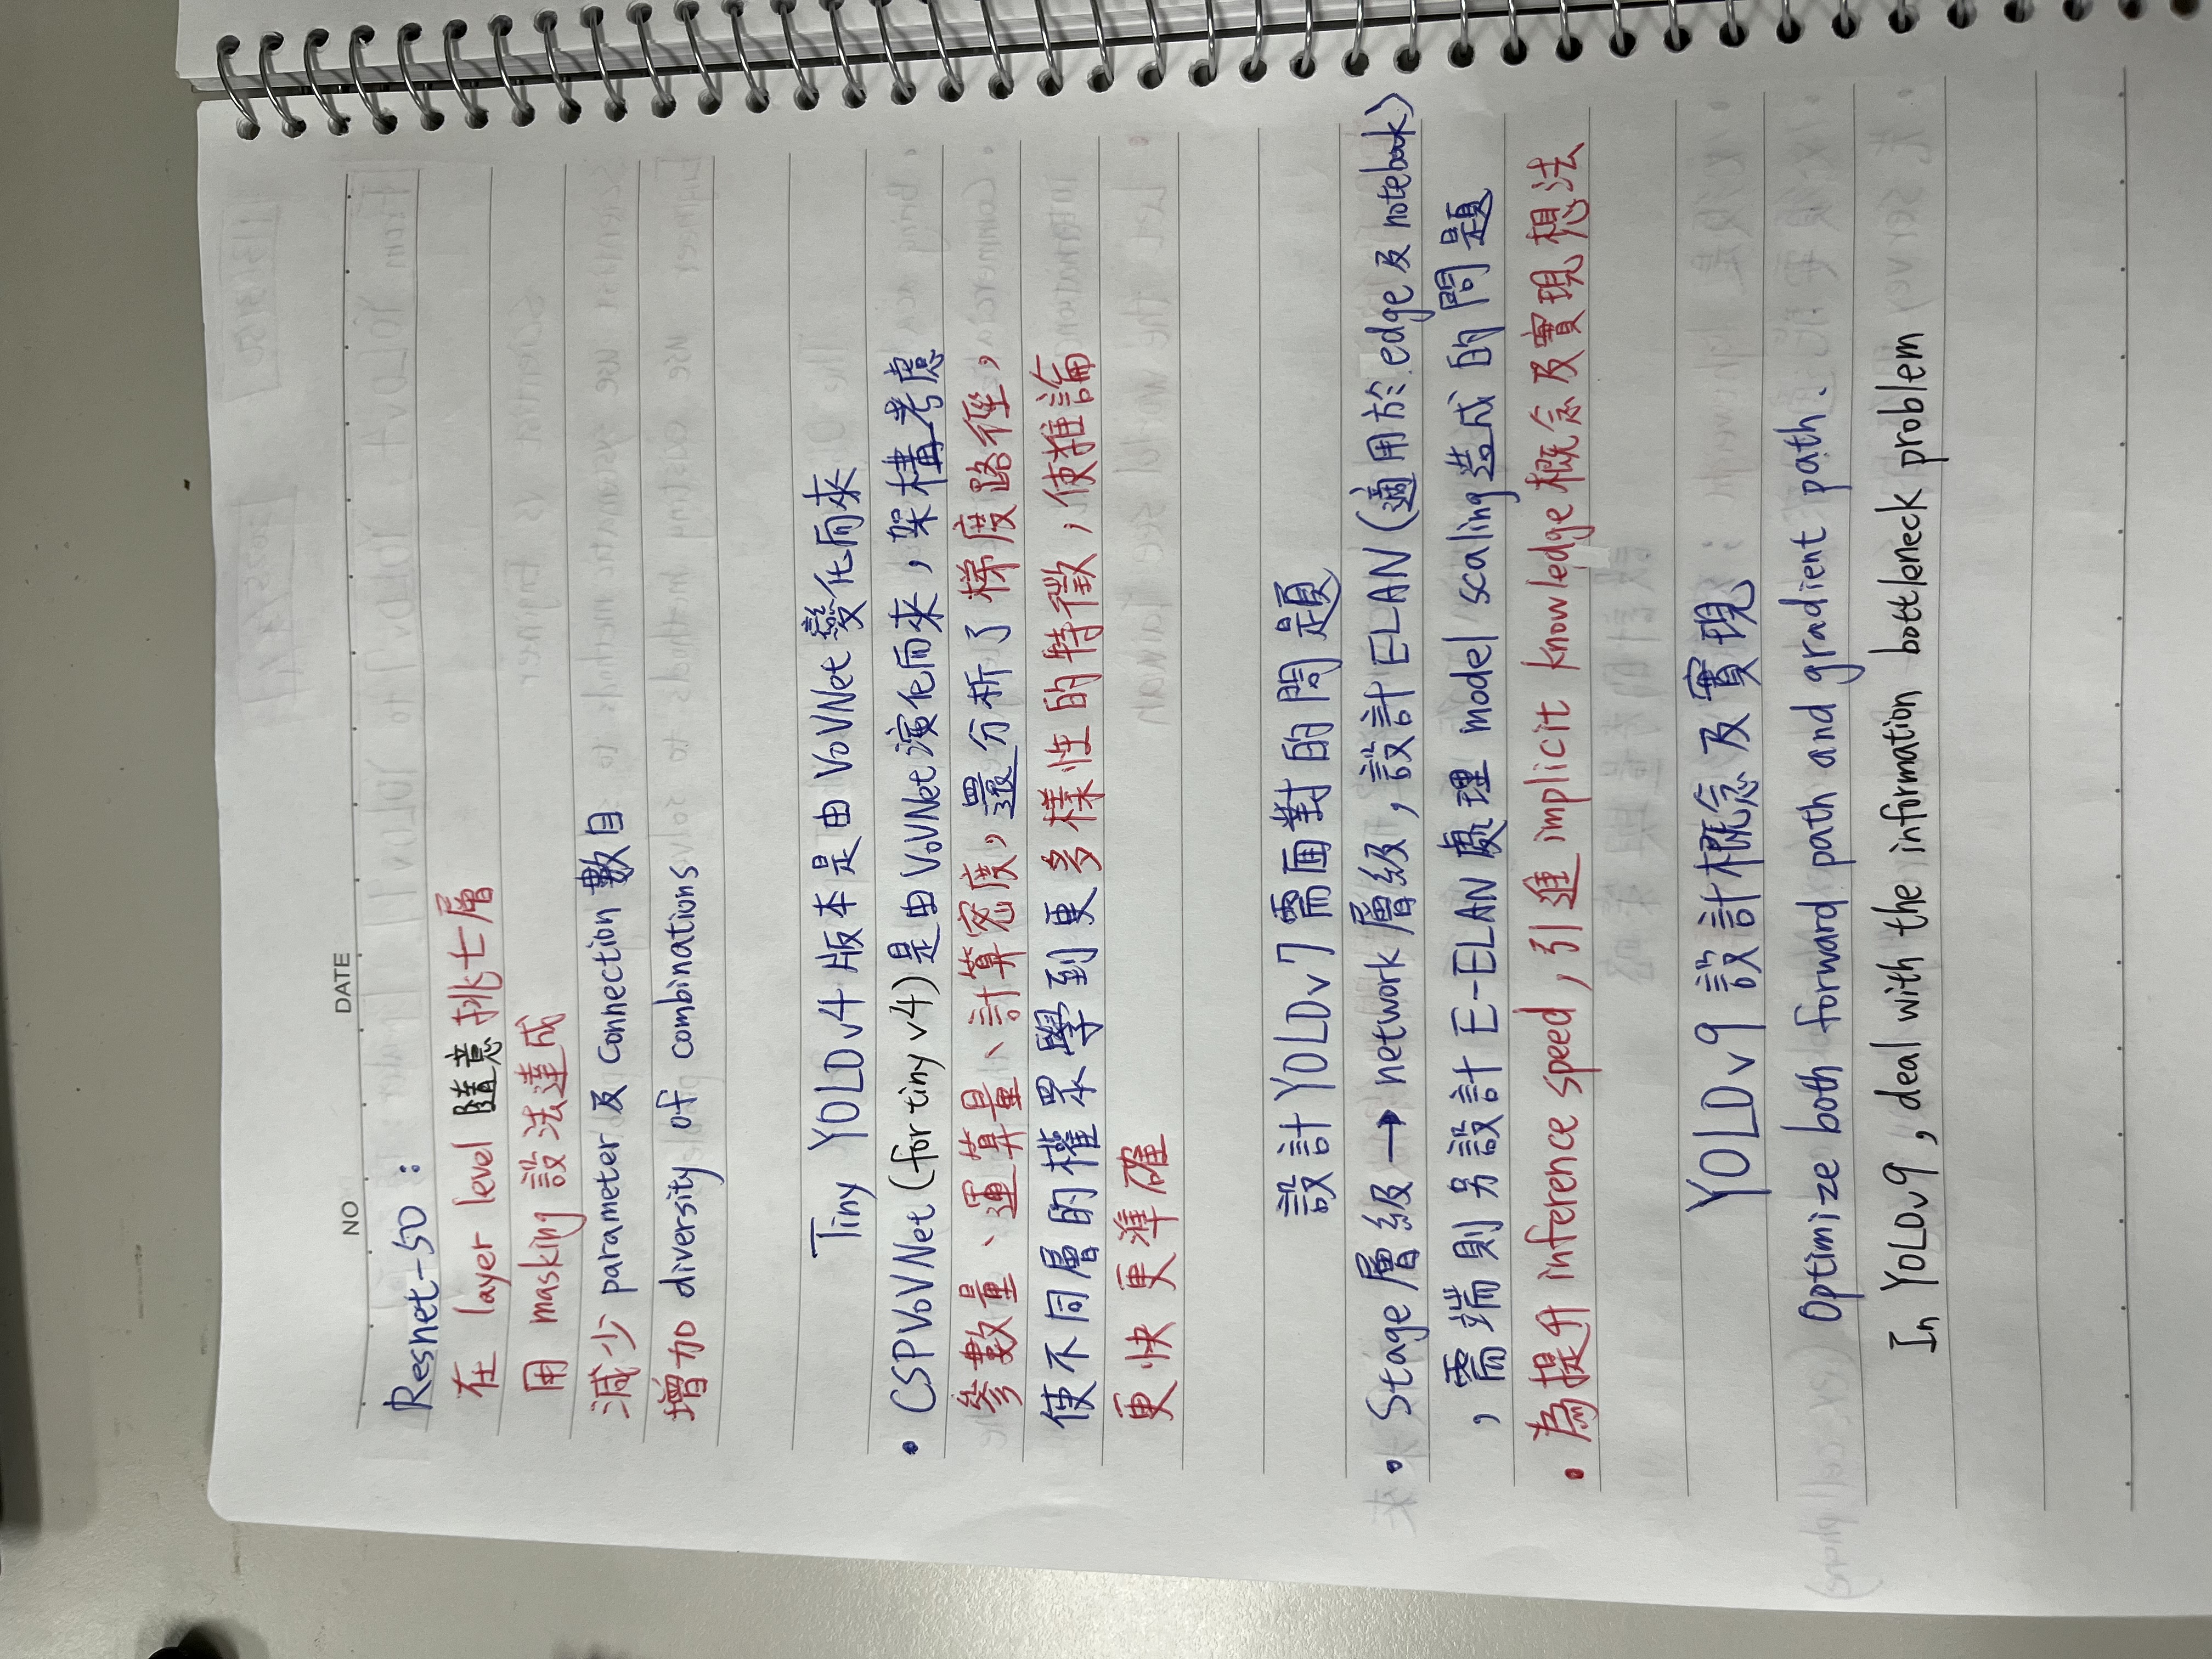 NO DATE
Resnet-50 :
在 layer level 隨意挑七層
用 masking 設法達成
減少 parameter 及 Connection 數目
增加 diversity of combinations
Tiny YOLOv4 版本是由 VoVNet 變化而來
• CSPVoVNet (for tiny v4) 是由 VoVNet 演化而來，架構考慮
參數量、運算量、計算密度，還分析了梯度路徑，
使不同層的權眾學到更多樣性的特徵，使推論
更快更準確
設計 YOLOv7 需面對的問題
• Stage 層級 → network 層級，設計 ELAN (適用於 edge 及 notebook)
，雲端則另設計 E-ELAN 處理 model scaling 造成的問題
• 為提升 inference speed，引進 implicit knowledge 概念及實現想法
YOLOv9 設計概念及實現
Optimize both forward path and gradient path.
In YOLOv9, deal with the information bottleneck problem